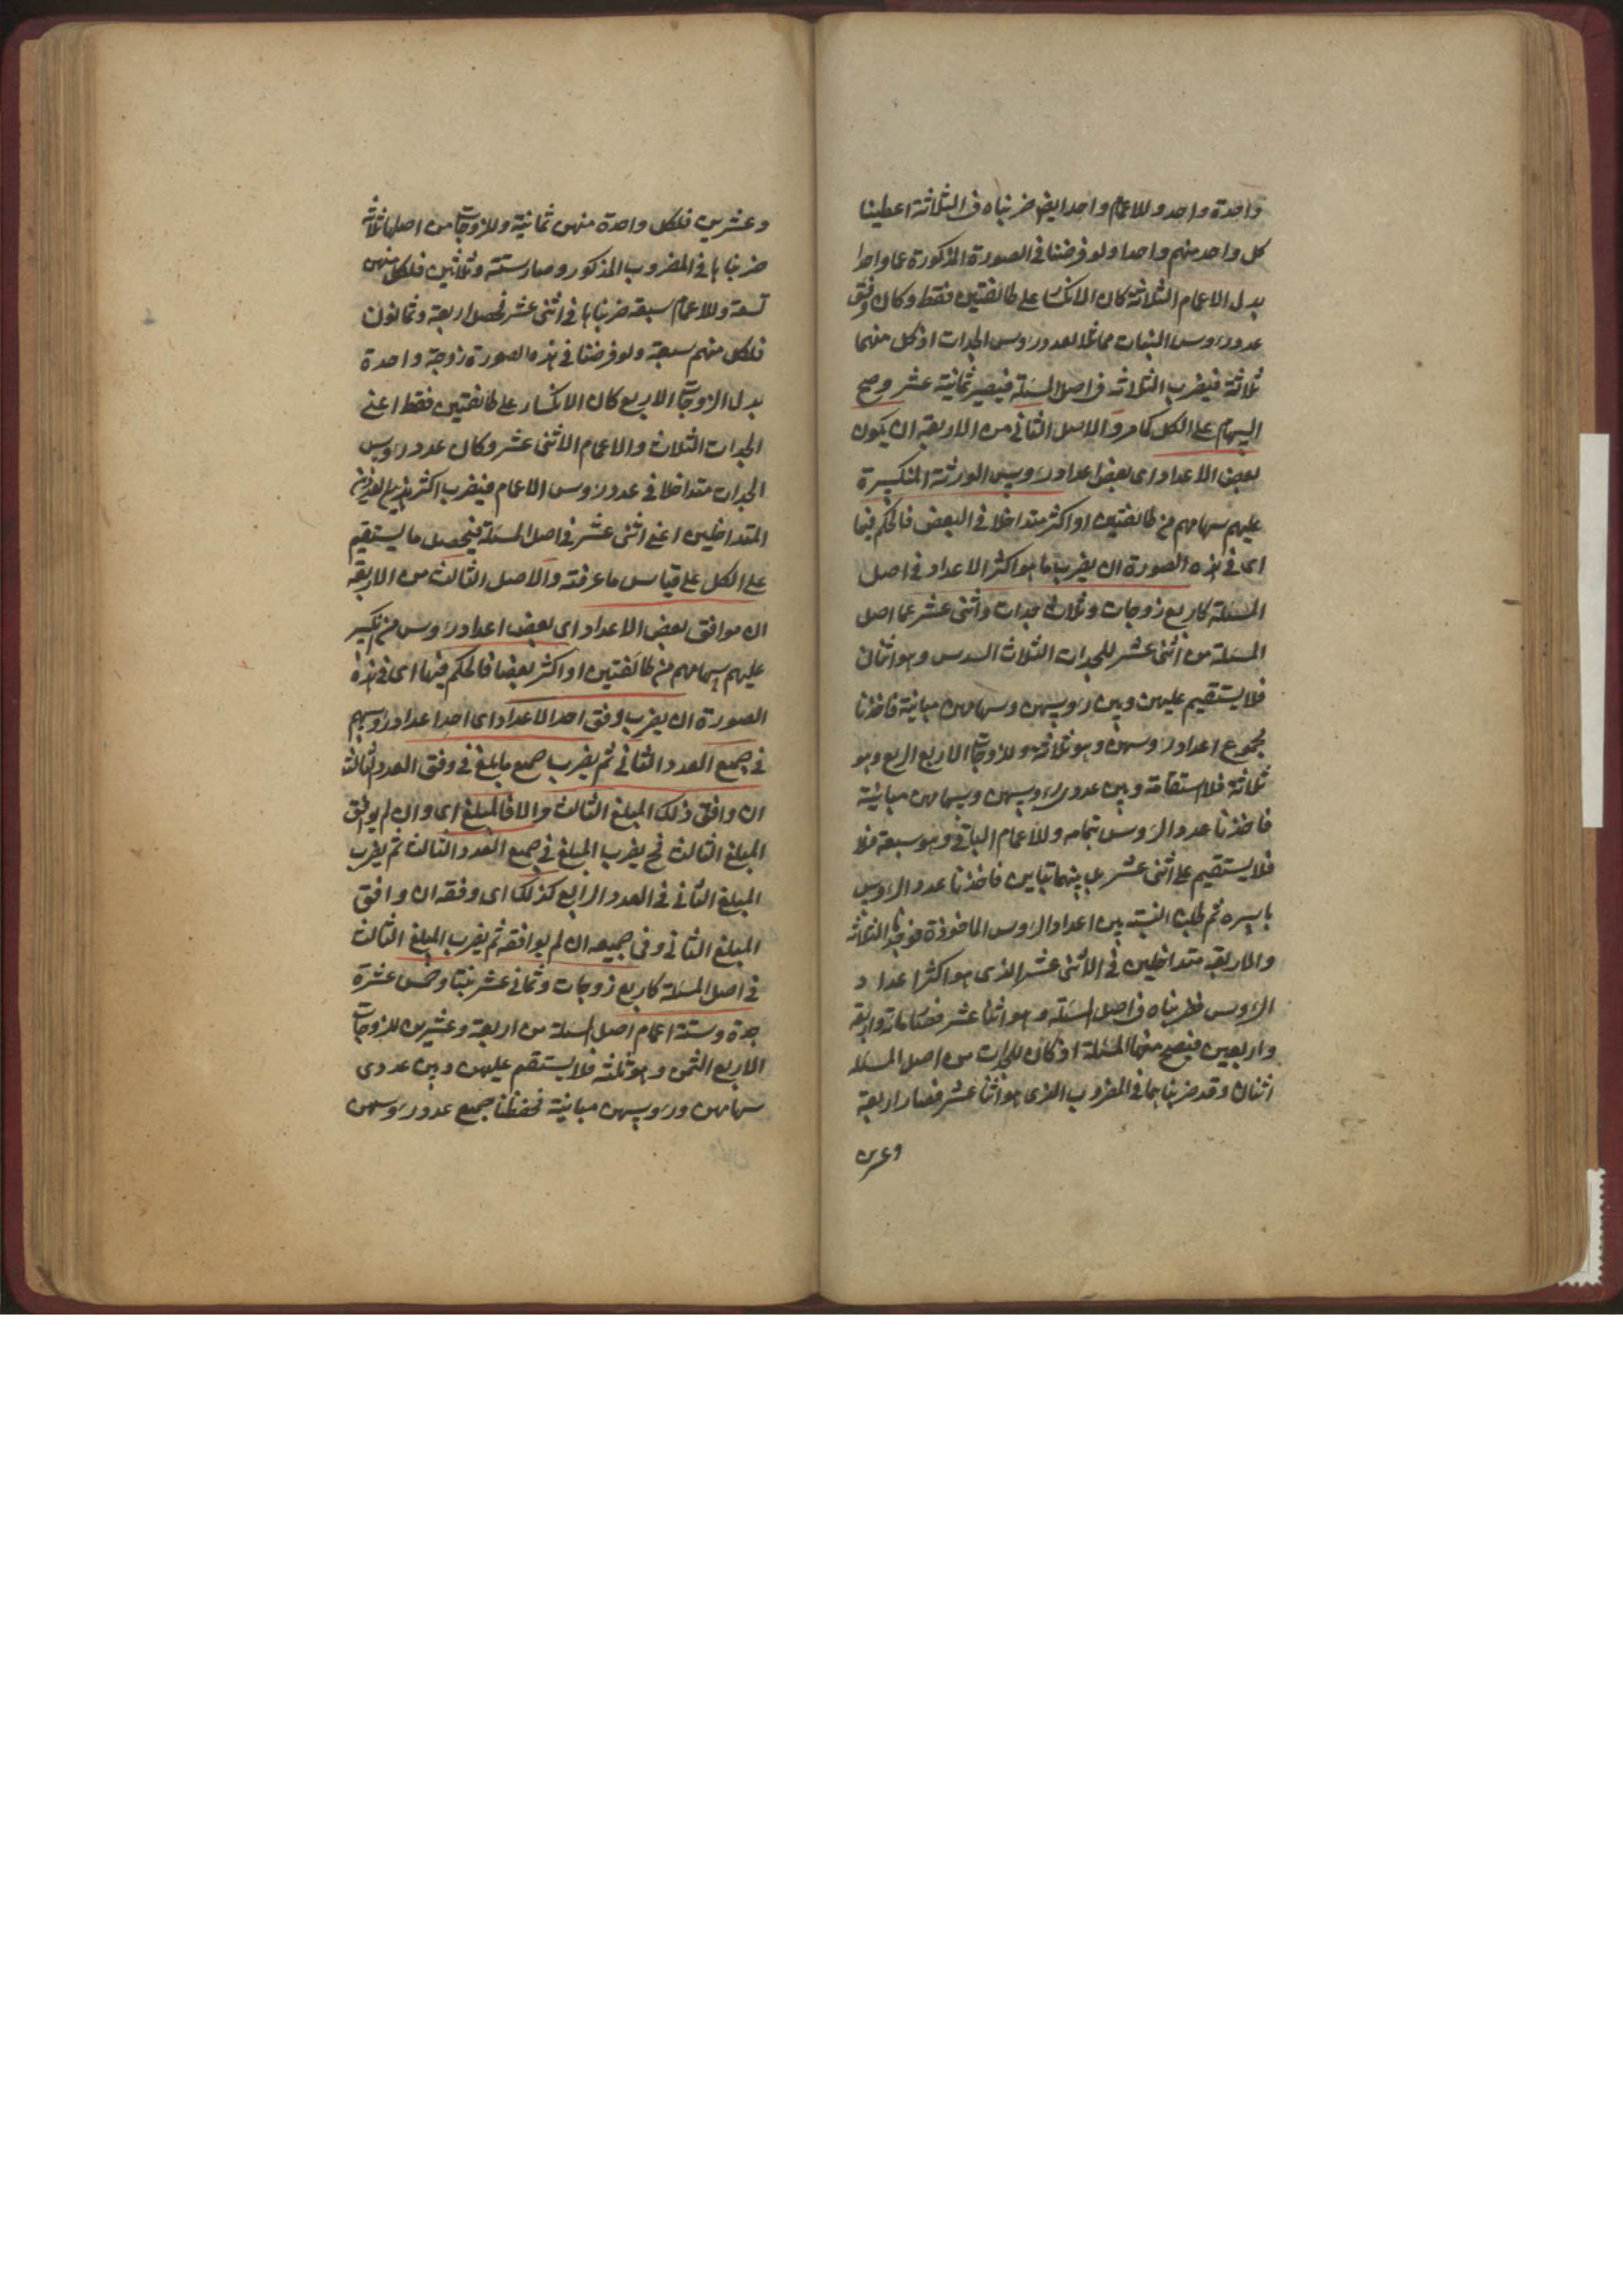 واحدة واحد وللاعمام واحد ايضا ضربناه فى الثلاثة اعطينا
كل واحد منهم واحدا ولو فرضنا فى الصورة المذكورة عما واحدا
بدل الاعمام الثلاثة كان الانكسار على طائفتين فقط وكان وفق
عدد رؤس البنات مماثلا لعدد رؤس الجدات اذ كل منهما
ثلاثة فيضرب الثلاثة فى اصل المسئلة فيصير ثمانية عشر وصح
السهام على الكل كما مر والاصل الثانى من الاربعة ان يكون
بعض الاعداد اى بعض اعداد رؤس الورثة المنكسرة
عليهم سهامهم من طائفتين او اكثر متداخلا فى البعض فالحكم فيها
اى فى هذه الصورة ان يضرب ما هو اكثر الاعداد فى اصل
المسئلة كاربع زوجات وثلاث جدات واثنى عشر عما اصل
المسئلة من اثنى عشر للجدات الثلاث السدس وهو اثنان
فلا يستقيم عليهن وبين رؤسهن وسهامهن مباينة فاخذنا
مجموع اعداد رؤسهن وهو ثلاثة وللزوجات الاربع الربع وهو
ثلاثة فلا استقامة وبين عددى رؤسهن وسهامهن مباينة
فاخذنا عدد الرؤس بتمامه وللاعمام الباقى وهو سبعة فلا
فلا يستقيم على اثنى عشر بل بينهما تباين فاخذنا عدد الرؤس
باسره ثم طلبنا النسبة بين اعداد الرؤس الماخوذة فوجدنا الثلاثة
والاربعة متداخلين فى الاثنى عشر الذى هو اكثر اعداد
الرؤس فضربناه فى اصل المسئلة وهو اثنا عشر فصار مائة واربعة
واربعين فيصح منها المسئلة اذ كان للجدات من اصل المسئلة
اثنان وقد ضربناهما فى المضروب الذى هو اثنا عشر فصار اربعة
وعشرين
وعشرين فلكل واحدة منهن ثمانية وللزوجات من اصلها ثلاثة
ضربناها فى المضروب المذكور وصار ستة وثلثين فلكل منهن
تسعة وللاعمام سبعة ضربناها فى اثنى عشر فحصل اربعة وثمانون
فلكل منهم سبعة ولو فرضنا فى هذه الصورة زوجة واحدة
بدل الزوجات الاربع كان الانكسار على طائفتين فقط اعنى
الجدات الثلاث والاعمام الاثنى عشر وكان عدد رؤس
الجدات متداخلا فى عدد رؤس الاعمام فيضرب اكثر هذين العددين
المتداخلين اعنى اثنى عشر فى اصل المسئلة فيحصل ما يستقيم
على الكل على قياس ما عرفته والاصل الثالث من الاربعة
ان موافق بعض الاعداد اى بعض اعداد رؤس من انكسر
عليهم سهامهم من طائفتين او اكثر بعضا فالحكم فيها اى فى هذه
الصورة ان يضرب وفق احد الاعداد اى احد اعداد رؤسهم
فى جميع العدد الثانى ثم يضرب جميع ما بلغ فى وفق العدد الثالث
ان وافق ذلك المبلغ الثالث والا فالمبلغ اى وان لم يوافق
المبلغ الثالث فح يضرب المبلغ فى جميع العدد الثالث ثم يضرب
المبلغ الثانى فى العدد الرابع كذلك اى وفقه ان وافق
المبلغ الثانى وفى جميعه ان لم يوافقه ثم يضرب المبلغ الثالث
فى اصل المسئلة كاربع زوجات وثمانى عشر بنتا وخمس عشرة
جدة وستة اعمام اصل المسئلة من اربعة وعشرين للزوجات
الاربع الثمن وهو ثلثة فلا يستقيم عليهن وبين عددى
سهامهن ورؤسهن مباينة فحفظنا جميع عدد رؤسهن